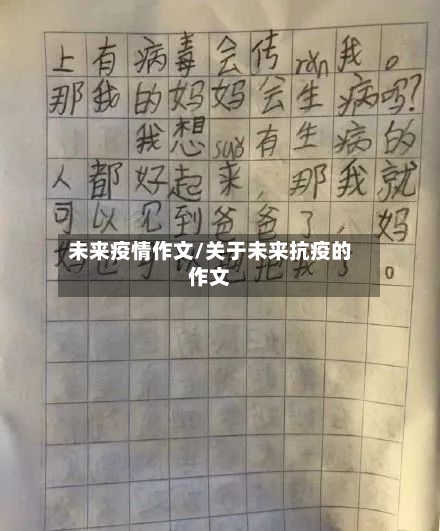 上有病毒会传rǎn我。
那我的妈妈会生病吗?
我想suǒ有生病的
人都好起来,那我就
可以见到爸爸了,妈
妈也可以抱抱我了。
未来疫情作文/关于未来抗疫的
作文